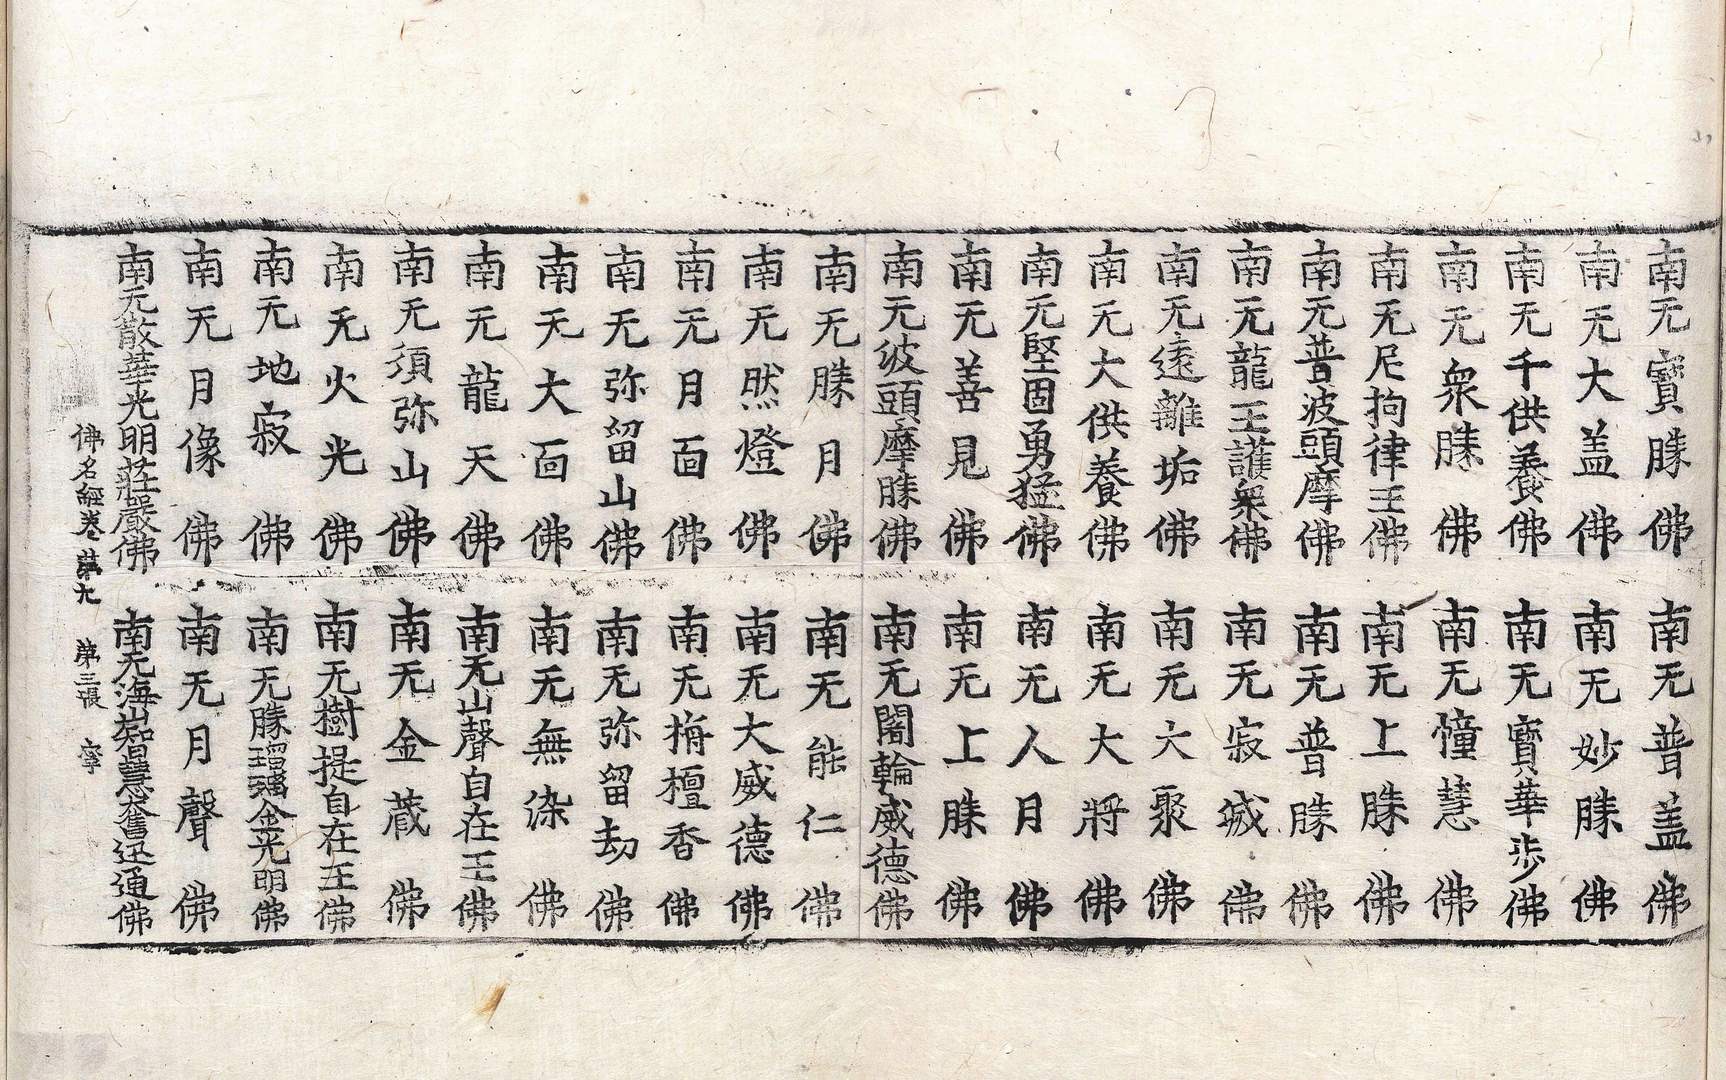 南无寶勝佛 南无普蓋佛
南无大盖佛 南无妙勝佛
南无千供養佛 南无寶華步佛
南无衆勝佛 南无憧慧佛
南无尼拘律王佛 南无上勝佛
南无普波頭摩佛 南无普勝佛
南无龍王護衆佛 南无寂滅佛
南无遠離垢佛 南无大聚佛
南无大供養佛 南无大將佛
南无堅固勇猛佛 南无人月佛
南无善見佛 南无上勝佛
南无波頭摩勝佛 南无闍輪威德佛
南无勝月佛 南无能仁佛
南无然燈佛 南无大威德佛
南无月面佛 南无栴檀香佛
南无弥留山佛 南无弥留劫佛
南无大面佛 南无無染佛
南无龍天佛 南无山聲自在王佛
南无須弥山佛 南无金蔵佛
南无火光佛 南无樹提自在王佛
南无地寂佛 南无勝瑠璃金光明佛
南无月像佛 南无月聲佛
南无散華光明莊嚴佛 南无海山智慧奮迅通佛
佛名經卷第九 第三張 寧